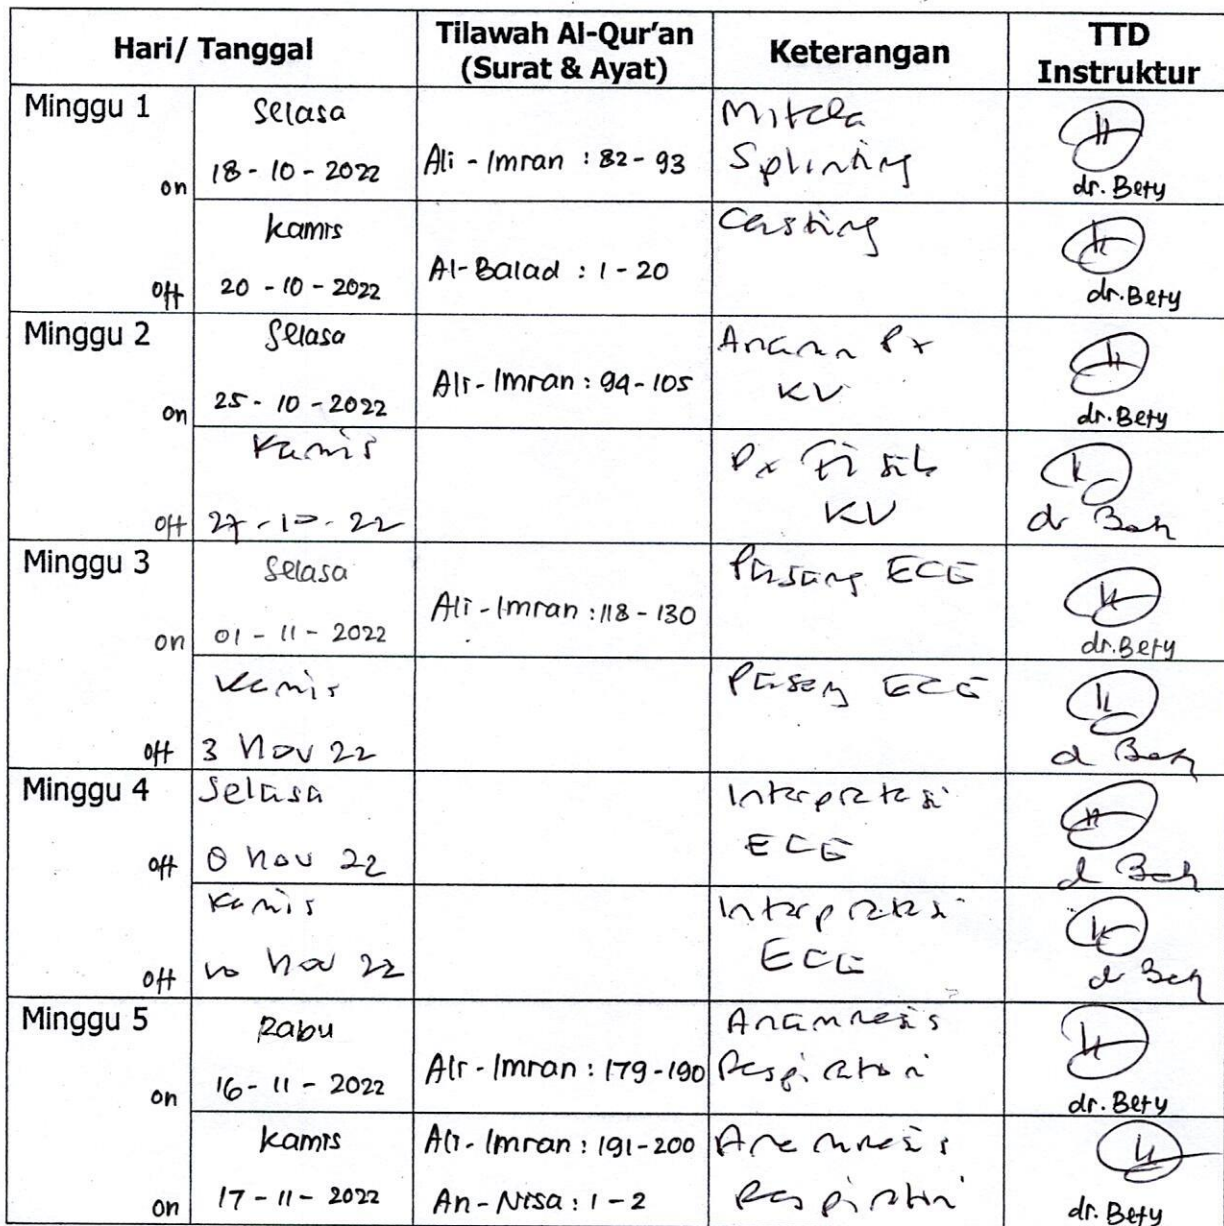 Hari/ Tanggal
Tilawah Al-Qur'an
(Surat & Ayat)
Keterangan
TTD
Instruktur
Minggu 1
on
Selasa
18 - 10 - 2022
Ali - Imran : 82 - 93
Mitela
Splinting
dr. Bety
off
Kamis
20 - 10 - 2022
Al-Balad : 1 - 20
Casting
dr. Bety
Minggu 2
on
Selasa
25 - 10 - 2022
Ali - Imran : 94 - 105
Px
KV
dr. Bety
off
Kamis
27 - 10 - 22
Px Fisik
KV
dr
Minggu 3
on
Selasa
01 - 11 - 2022
Ali - Imran : 118 - 130
Pasang ECG
dr. Bety
off
Kamis
3 Nov 22
Pasang ECG
Minggu 4
off
Selasa
8 Nov 22
Interpretasi
ECG
off
Kamis
10 Nov 22
Interpretasi
ECG
Minggu 5
on
Rabu
16 - 11 - 2022
Ali - Imran : 179 - 190
Anamnesis
Respiratori
dr. Bety
on
Kamis
17 - 11 - 2022
Ali - Imran : 191 - 200
An - Nisa : 1 - 2
Anamnesis
Respiratori
dr. Bety